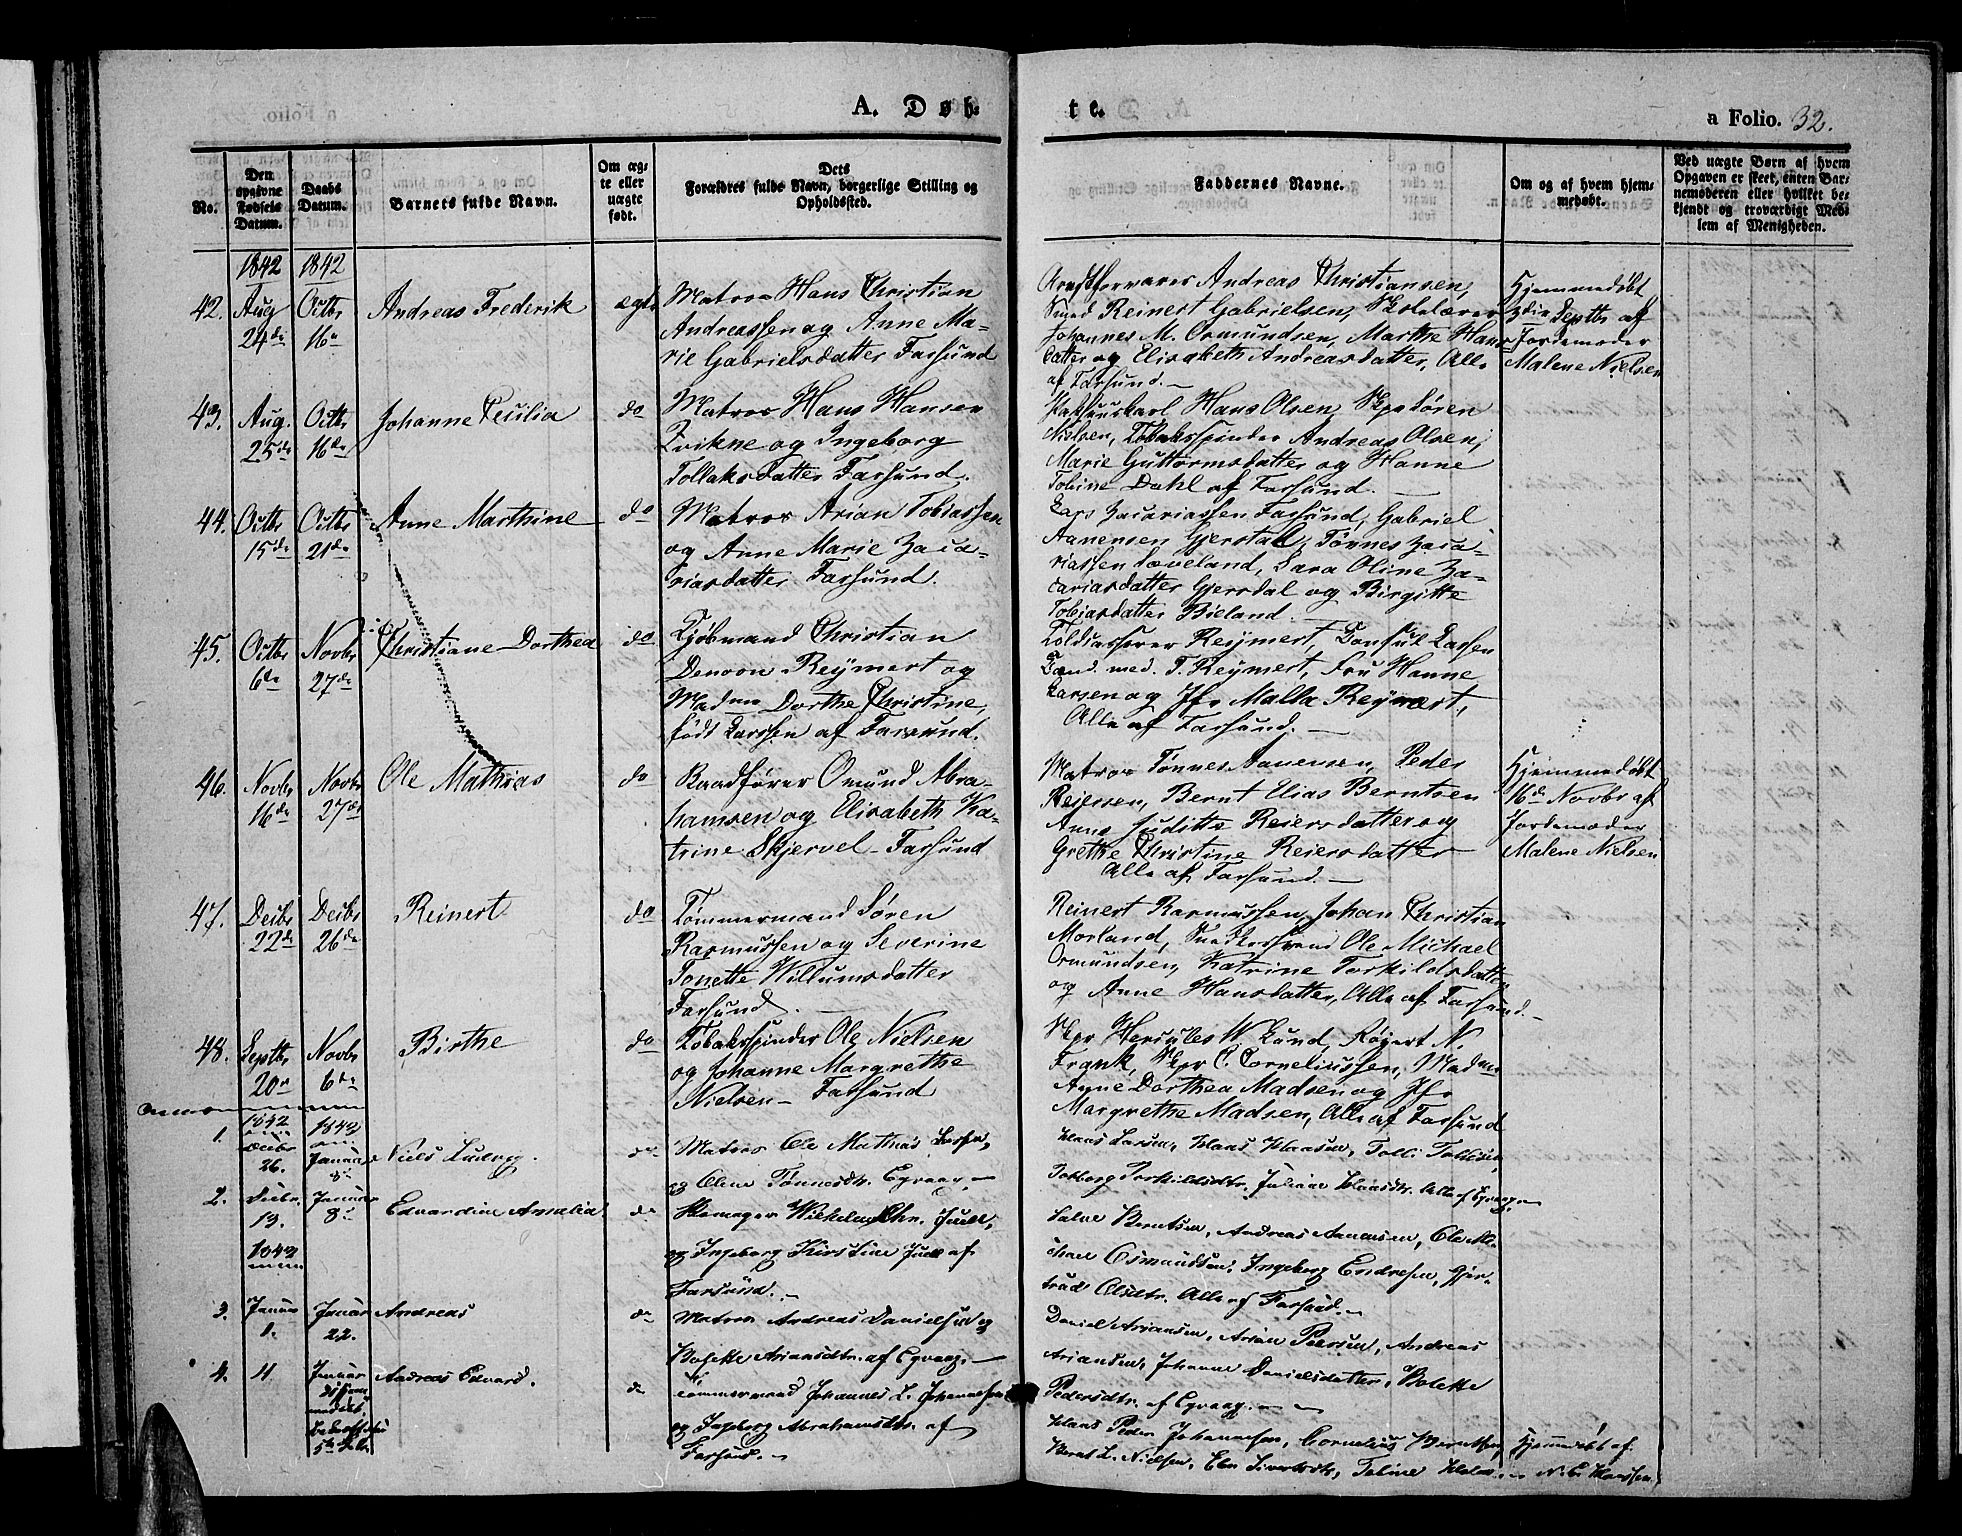 A. Døb-
te.
a Folio. 32.
No.
Den opgivne Fødsels Datum.
Daabs Datum.
Barnets fulde Navn.
Om ægte eller uægte født.
Dets Forældres fulde Navn, borgerlige Stilling og Opholdssted.
Faddernes Navne.
Om og af hvem hjemmedøbt.
Ved uægte Børn af hvem Opgaven er skeet, enten Barnemoderen eller hvilket bekjendt og troværdigt Medlem af Menigheden.
1842 1842
42. Aug 24de
Octbr 16de
Andreas Frederik
ægte
Matros Hans Christian
Andreassen og Anne Ma-
rie Gabrielsdatter Farsund
Andreas Christiansen,
Smed Reinert Gabrielsen, Skolelærer
Johannes M. Osmundsen, Marthe Hans
datter og Elisabeth Andreasdatter, Alle
af Farsund.
Hjemmedøbt
3die Septbr af
Jordemoder
Malene Nielsen
43. Aug. 25de
Octbr 16de
Johanne Cecilia
do
Matros Hans Hansen
Kvikne og Ingeborg
Tollaksdatter Farsund.
Hans Olsen, Skpr Søren
Nielsen, Tobaksspinder Andreas Olsen,
Marie Guttormsdatter og Hanne
Tobine Dahl af Farsund.
44. Octbr 15de
Octbr 21de
Anne Marthine
do
Matros Arian Tobiassen
og Anne Marie Zaca-
riasdatter Farsund.
Lars Zacariassen Farsund, Gabriel
Aanensen Gjersdal, Tønnes Zaca-
riassen Loveland, Sara Oline Za-
cariasdatter Gjersdal og Birgitte
Tobiasdatter Bieland.
45. Octbr 6de
Novbr 27de
Christiane Dorthea
do
Kjøbmand Christian
Denoon Reymert og
Madme Dorthe Christine,
født Larssen af Farsund.
Toldkasserer Reymert, Consul Lassen
Cand. med. T. Reymert, Fru Hanne
Larsen og Jfr Malla Reymert,
Alle af Farsund.
46. Novbr 16de
Novbr 27de
Ole Mathias
do
Baadfører Omund Abra-
hamsen og Elisabeth Ka-
trine Skjervel - Farsund
Matros Tønnes Aanensen, Peder
Reiersen, Bernt Elias Berntsen
Anne Juditte Reiersdatter og
Grethe Christine Reiersdatter
Alle af Farsund.
Hjemmedøbt
16de Novbr af
Jordemoder
Malene Nielsen
47. Decbr 22de
Decbr 26de
Reinert
do
Tømmermand Søren
Rasmussen og Severine
Tonette Willumsdatter
Farsund.
Reinert Rasmussen, Johan Christian
Morland, Ole Michael
Osmundsen, Katrine Torkildsdatter
og Anne Hansdatter, Alle af Farsund.
48. Septbr 20de
Novbr 6te
Birthe
do
Tobaksspinder Ole Nielsen
og Johanne Margrethe
Nielsen - Farsund
Skpr Hercules W. Lund, Røyert N.
Frank, Skpr C. Corneliussen, Madme
Anne Dorthea Madsen og Jfr
Margrethe Madsen, Alle af Farsund
1842 1843
1. Decbr 26.
Januar 8de
Niels Ludvig.
do
Matros Ole Mathias Larsen,
og Olene Tønnesdtr. Egvaag.
Klaas Larsen, Klaas Klaasen, Tolli Tollisen,
Torborg Torkildsdtr. Juliane Klaasdtr. Alle af Egvaag.
2. Decbr 13.
Januar 8de
Edvardine Amalia
do
Skomager Wilhelm Chr. Juell,
og Ingeborg Kirstine Juell af
Farsund.
Salve Berntsen, Andreas Aanensen, Ole Mi-
chael Osmundsen, Ingeborg Endresen, Gjer-
trud Olsdtr. Alle af Farsund.
1843
3. Januar 1.
Januar 22.
Andreas
do
Matros Andreas Danielsen og
Bolette Ariansdtr. af Egvaag.
Daniel Ariansen, Arian Pedersen, Andreas
Ariansen, Johanne Danielsdatter, Bolette
Pedersdtr. af Egvaag.
4. 4
Januar
Andreas Edvard.
do
Tømmermand Johannes L. Johannesen
og Ingeborg Abrahamsdtr. af
Farsund.
Hans Peder Johannesen, Cornelius Berntsen,
Bernt L. Nielsen, Tobine
Hjemmedøbt af
N. C. Hanssen